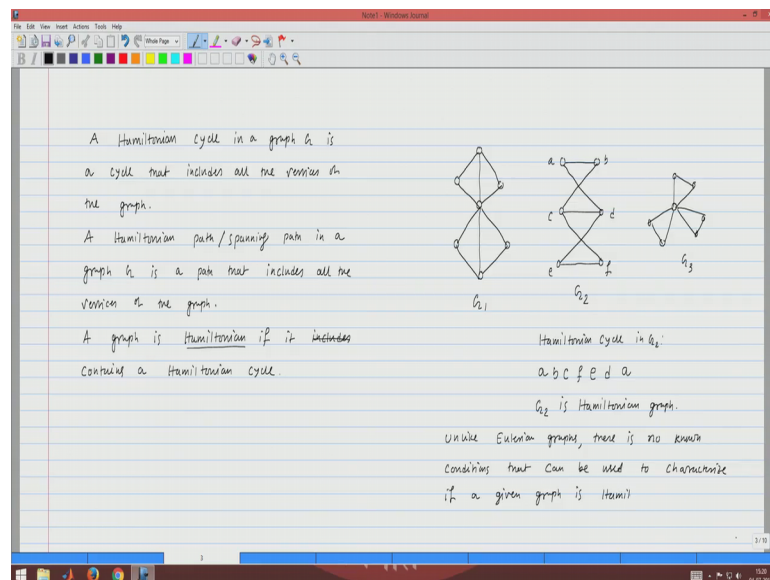 Note1 - Windows Journal
File Edit View Insert Actions Tools Help
Whole Page
B I
A Hamiltonian cycle in a graph G is
a cycle that includes all the vertices of
the graph.
A Hamiltonian path/spanning path in a
graph G is a path that includes all the
vertices of the graph.
A graph is Hamiltonian if it includes
contains a Hamiltonian cycle.
a b
c d
e f
G1
G2
G3
Hamiltonian cycle in G2:
a b c f e d a
G2 is Hamiltonian graph.
Unlike Eulerian graphs, there is no known
conditions that can be used to characterize
if a given graph is Hamil
3/10
3
15:20